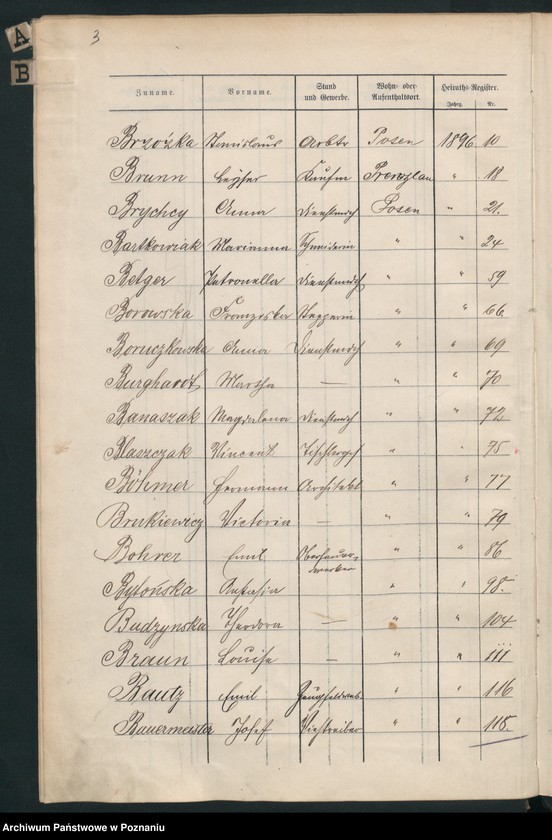 3
A
B
Zuname. Vorname. Stand und Gewerbe. Wohn- oder Aufenthaltsort. Heiraths-Register.
Jahrg. Nr.
Brzózka Stanislaus Arbtr Posen 1896 10
Brann Kaufm Prenzlau " 18
Brychcy Anna Dienstmdch Posen " 21.
Bartkowiak Marianna Schneiderin " " 24
Betger Petronella Dienstmdch " " 59
Borowska Franziska " " 66
Boruczkowska Anna Dienstmdch " " 69
Burghardt Martha — " " 70
Banaszak Magdalena Dienstmdch " " 72
Blaszczak Vincent Tischlerges " " 75
Böhmer Hermann Architekt " " 77
Brukiewicz Victoria — " " 79
Bohrer Emil Oberfeuerwerker " " 86
Bytońska Antasia " " 98.
Budzynska Theodora — " " 104
Braun Louise — " " 111
Bautz Emil Zeugfeldweb. " " 116
Bauermeister Josef Viehtreiber " " 118.
Archiwum Państwowe w Poznaniu